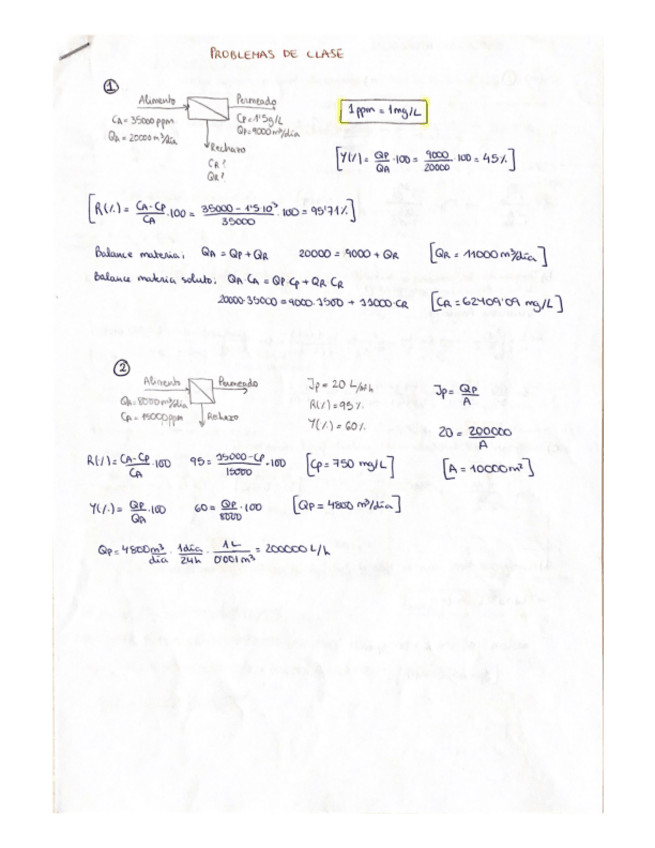 PROBLEMAS DE CLASE
①
Alimento
CA = 35000 ppm
QA = 20000 m³/día
Permeado
Cp = 1'5g/L
Qp = 9000 m³/día
Rechazo
CR?
QR?
1 ppm = 1 mg/L
[Y(%) = Qp/QA · 100 = 9000/20000 · 100 = 45%]
[R(%) = CA - Cp/CA · 100 = 35000 - 1'5·10³/35000 · 100 = 95'71%]
Balance materia: QA = Qp + QR 20000 = 9000 + QR [QR = 11000 m³/día]
Balance materia soluto: QA·CA = Qp·Cp + QR CR
20000·35000 = 9000·1500 + 11000·CR [CR = 62409'09 mg/L]
②
Alimento
QA = 8000 m³/día
CA = 15000 ppm
Permeado
Rechazo
Jp = 20 L/m²h
R(%) = 95%
Y(%) = 60%
Jp = Qp/A
20 = 200000/A
[A = 10000 m²]
R(%) = CA - Cp/CA · 100 95 = 15000 - Cp/15000 · 100 [Cp = 750 mg/L]
Y(%) = Qp/QA · 100 60 = Qp/8000 · 100 [Qp = 4800 m³/día]
Qp = 4800 m³/día · 1día/24h · 1L/0'001 m³ = 200000 L/h